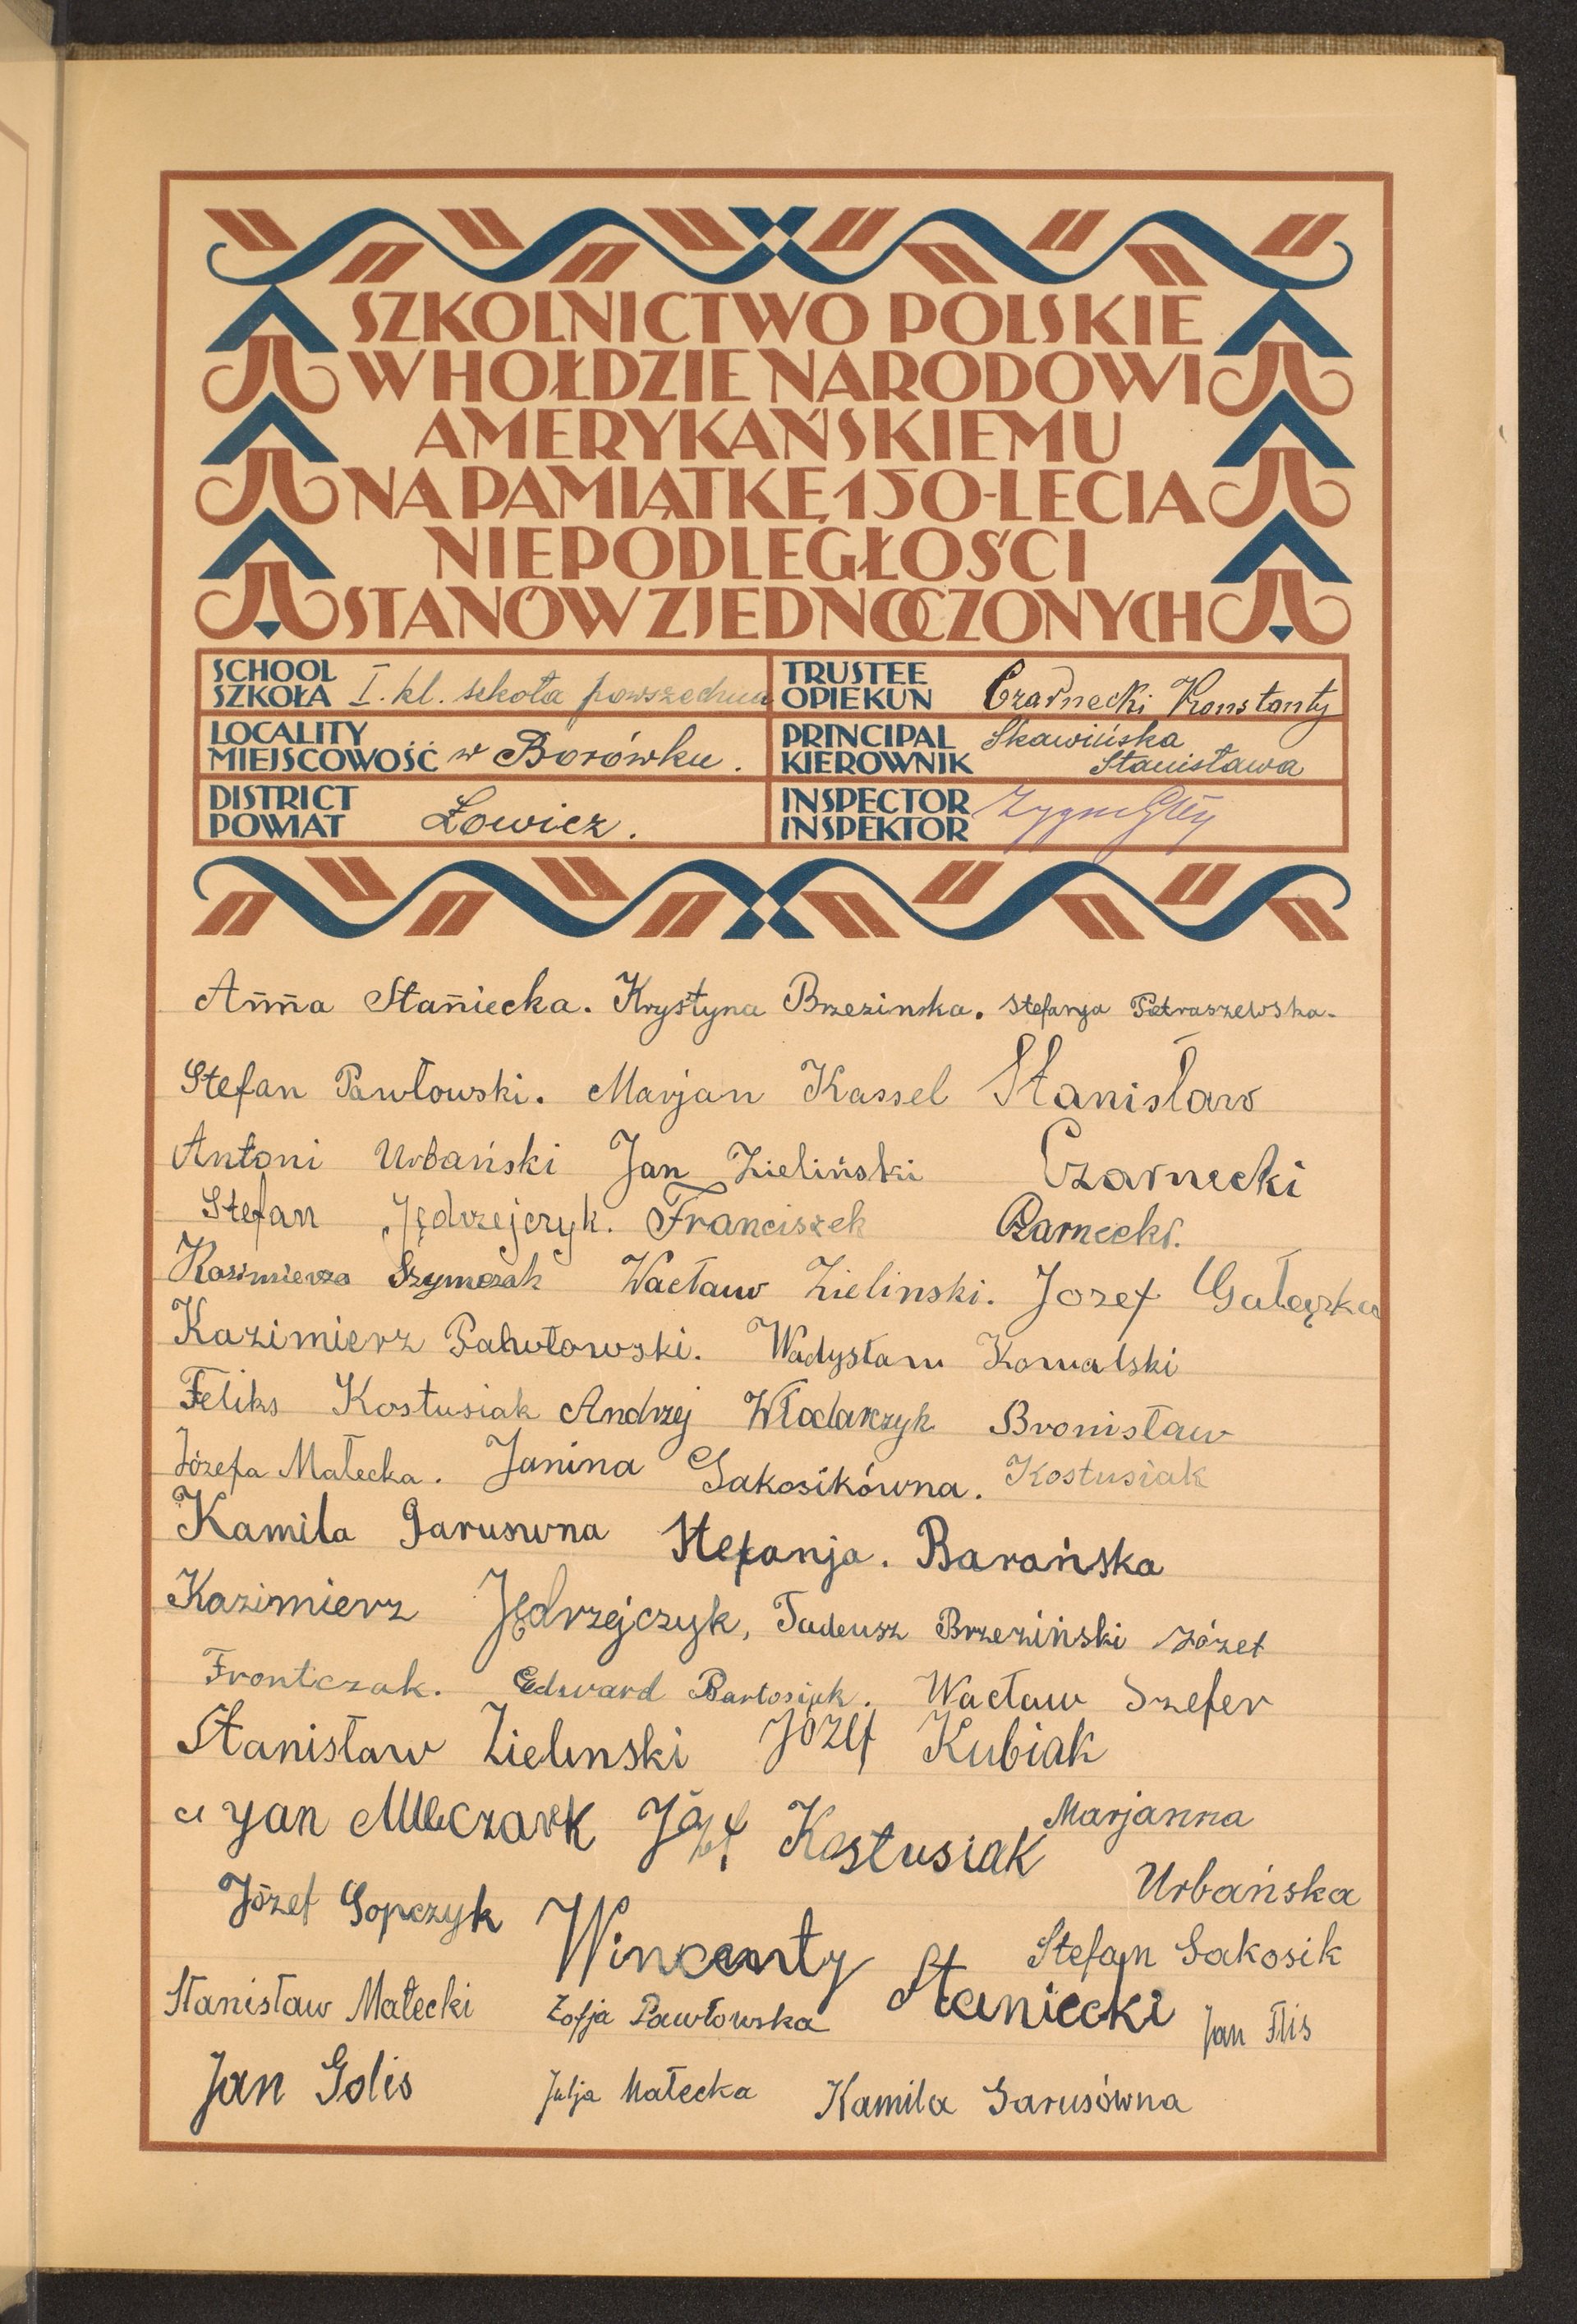 SZKOLNICTWO POLSKIE
W HOŁDZIE NARODOWI
AMERYKAŃSKIEMU
NA PAMIĄTKĘ 150-LECIA
NIEPODLEGŁOŚCI
STANÓW ZJEDNOCZONYCH
SCHOOL
SZKOŁA I. kl. szkoła powszechna
TRUSTEE
OPIEKUN Czarnecki Konstanty
LOCALITY
MIEJSCOWOŚĆ w Borówku.
PRINCIPAL Skawińska
KIEROWNIK Stanisława
DISTRICT
POWIAT Łowicz.
INSPECTOR
INSPEKTOR
Anna Staniecka. Krystyna Brzezinska. Stefanja Pietraszewska.
Stefan Pawłowski. Marjan Kassel Stanisław
Antoni Urbański Jan Zieliński Czarnecki
Stefan Jędrzejczyk. Franciszek Czarnecki.
Kazimierza Szymczak Wacław Zielinski. Jozef Gałązka
Kazimierz Pawłowski. Władysław Kowalski
Feliks Kostusiak Andrzej Włodarczyk Bronisław
Józefa Małecka. Janina Gakosikówna. Kostusiak
Kamila Garuswna Stefanja. Barańska
Kazimierz Jędrzejczyk, Tadeusz Brzeziński Józef
Frontczak. Edward Bartosiak. Wacław Szefer
Stanisław Zielinski Józef Kubiak
Jan Mleczarek Józef Kostusiak Marjanna
Urbańska
Józef Gopczyk Wincenty Stefan Gakosik
Stanisław Małecki Zofja Pawłowska Staniecki Jan Flis
Jan Golis Julja Małecka Kamila Garusówna